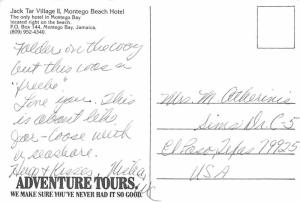 Jack Tar Village II, Montego Beach Hotel
The only hotel in Montego Bay
located right on the beach.
P.O. Box 144, Montego Bay, Jamaica.
(809) 952-4340.
Folder on the way
but this was a
"freebe."
Love you. This
is about like
Jar-loose with
a seashore.
Hugs & Kisses,
ADVENTURE TOURS.
WE MAKE SURE YOU'VE NEVER HAD IT SO GOOD.
Mrs. M. Catherinis
Sims Dr. C-5
El Paso, Texas 79925
USA